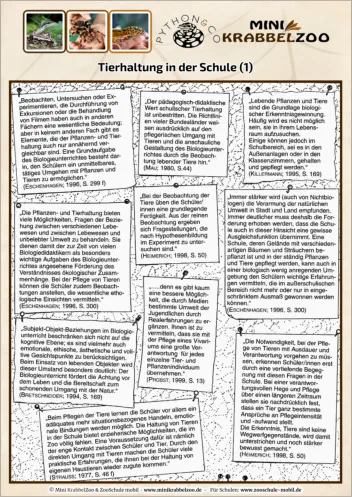 PYTHON & CO
MINI
KRABBELZOO
Tierhaltung in der Schule (1)
„Beobachten, Untersuchen oder Ex-
perimentieren, die Durchführung von
Exkursionen oder die Behandlung
von Filmen haben auch in anderen
Fächern eine wesentliche Bedeutung;
aber in keinem anderen Fach gibt es
Elemente, die der Pflanzen- und Tier-
haltung auch nur annähernd ver-
gleichbar sind. Eine Grundaufgabe
des Biologieunterrichtes besteht dar-
in, den Schülern ein unmittelbares,
tätiges Umgehen mit Pflanzen und
Tieren zu ermöglichen.“
(ESCHENHAGEN; 1996, S. 299 f)
„Der pädagogisch-didaktische
Wert schulischer Tierhaltung
ist unbestritten. Die Richtlini-
en vieler Bundesländer wei-
sen ausdrücklich auf den
pflegerischen Umgang mit
Tieren und die anschauliche
Gestaltung des Biologieunter-
richtes durch die Beobach-
tung lebender Tiere hin.“
(MAU; 1980, S.44)
„Lebende Pflanzen und Tiere
sind die Grundlage biologi-
scher Erkenntnisgewinnung.
Häufig wird es nicht möglich
sein, sie in ihrem Lebens-
raum aufzusuchen.
Einige können jedoch im
Schulbereich, sei es in den
Außenanlagen oder in den
Klassenzimmern, gehalten
und gepflegt werden.“
(KILLERMANN; 1995, S. 169)
„Die Pflanzen- und Tierhaltung bieten
viele Möglichkeiten, Fragen der Bezie-
hung zwischen verschiedenen Lebe-
wesen und zwischen Lebewesen und
unbelebter Umwelt zu behandeln. Sie
dienen damit der zur Zeit von vielen
Biologiedidaktikern als besonders
wichtige Aufgabe des Biologieunter-
richtes angesehenen Förderung des
Verständnisses ökologischer Zusam-
menhänge. Bei der Pflege von Tieren
können die Schüler zudem Beobach-
tungen anstellen, die wesentliche etho-
logische Einsichten vermitteln.“
(ESCHENHAGEN; 1996, S. 300)
„Bei der Beobachtung der
Tiere üben die Schüler/
innen eine grundlegende
Fertigkeit. Aus der reinen
Beobachtung ergeben
sich Fragestellungen, die
nach Hypothesenbildung
im Experiment zu unter-
suchen sind.“
(HEIMERICH; 1998, S. 50)
„Immer stärker wird (auch von Nichtbio-
logen) die Verarmung der natürlichen
Umwelt in Stadt und Land empfunden.
Immer deutlicher muss deshalb die For-
derung erhoben werden, dass die Schu-
le auch in dieser Hinsicht eine gewisse
Ausgleichsfunktion übernimmt. Eine
Schule, deren Gelände mit verschieden-
artigen Bäumen und Sträuchern be-
pflanzt ist und in der ständig Pflanzen
und Tiere gepflegt werden, kann auch in
einer biologisch wenig anregenden Um-
gebung den Schülern wichtige Erfahrun-
gen vermitteln, die im außerschulischen
Bereich nicht mehr oder nur in einge-
schränktem Ausmaß gewonnen werden
können.“
(ESCHENHAGEN; 1996, S. 300)
„...denn es gibt kaum
eine bessere Möglich-
keit, die durch Medien
bestimmte Umwelt der
Jugendlichen durch
Realerfahrungen zu er-
gänzen. Ihnen ist zu
vermitteln, dass sie mit
der Pflege eines Vivari-
ums eine große Ver-
antwortung für jedes
einzelne Tier- und
Pflanzenindividuum
übernehmen.“
(PROBST; 1999, S. 13)
„Subjekt-Objekt-Beziehungen im Biologie-
unterricht beschränken sich nicht auf die
kognitive Ebene; es sind vielmehr auch
emotionale, ethische, ästhetische und voli-
tive Gesichtspunkte zu berücksichtigen.
Beim Einsatz von lebenden Objekten wird
dieser Umstand besonders deutlich: Der
Biologieunterricht fördert die Achtung vor
dem Leben und die Bereitschaft zum
schonenden Umgang mit der Natur.“
(BRETSCHNEIDER; 1994, S. 169)
„Die Notwendigkeit, bei der Pfle-
ge von Tieren mit Ausdauer und
Verantwortung vorgehen zu müs-
sen, erkennen Schüler/innen erst
durch eine vertiefende Begeg-
nung mit diesen Fragen in der
Schule. Bei einer verantwor-
tungsvollen Hege und Pflege
über einen längeren Zeitraum
stellen sie nachdrücklich fest,
dass ein Tier ganz bestimmte
Ansprüche an Pflegeintensität
und -aufwand stellt.
Die Erkenntnis, Tiere sind keine
Wegwerfgegenstände, wird damit
unterstrichen und noch stärker
bewusst gemacht.“
(HEIMERICH; 1998, S. 50)
„Beim Pflegen der Tiere lernen die Schüler vor allem ein
adäquates mehr situationsbezogenes Handeln, emotio-
nale Bindungen werden möglich. Die Haltung von Tieren
in der Schule bietet erzieherische Möglichkeiten, die im
Zoo völlig fehlen. Eine Voraussetzung dafür ist nämlich
der enge Kontakt zwischen Schüler und Tier. Durch den
direkten Umgang mit Tieren machen die Schüler viele
praktische Erfahrungen, die ihnen bei der Haltung von
eigenen Haustieren wieder zugute kommen.“
(STRAUSS; 1977, S. 46 f)
© Mini KrabbelZoo & ZooSchule mobil - www.minikrabbelzoo.de - Für Schulen: www.zooschule-mobil.de